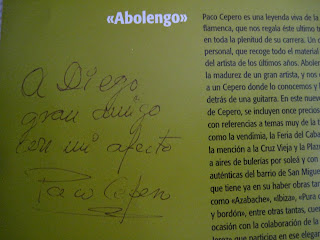 «Abolengo»
A Diego
gran amigo
con mi afecto
Paco Cepero
Paco Cepero es una leyenda viva de la
flamenca, que nos regala este último tr
en toda la plenitud de su carrera. Un c
personal, que recoge todo el material
del artista de los últimos años. Abolen
la madurez de un gran artista, y nos
a un Cepero donde lo conocemos y l
detrás de una guitarra. En este nuevo
de Cepero, se incluyen once precios
con referencias a temas muy de la t
como la vendimia, la Feria del Caba
la mención a la Cruz Vieja y la Plaz
a aires de bulerías por soleá y con
auténticas del barrio de San Miguel
que tiene ya en su haber obras tan
como «Azabache», «Ibiza», «Pura
y bordón», entre otras tantas, cuen
ocasión con la colaboración de la
que participa en ese elegan